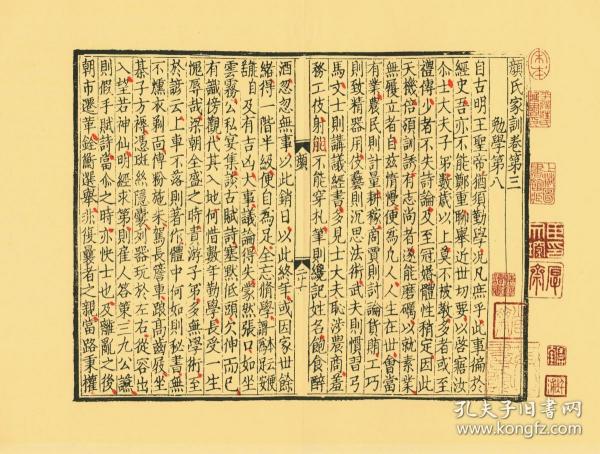 顔氏家訓卷第三
勉學第八
自古明王聖帝猶須勤學况凡庶乎此事徧於
經史吾亦不能鄭重聊舉近世切要以啓寤汝
尒士大夫子弟數歲以上莫不被教多者或至
禮傳少者不失詩論及至冠婚體性稍定因此
天機倍須訓誘有志尚者遂能磨礪以就素業
無履立者自兹惰慢便爲凡人人生在世會當
有業農民則計量耕稼商賈則討論貨賄工巧
則致精器用伎藝則沉思法術武夫則慣習弓
馬文士則講議經書多見士大夫恥涉農商羞
務工伎射能不能穿札筆則纔記姓名飽食醉
顔
二十
酒忽忽無事以此銷日以此終年或因家世餘
緒得一階半級便自爲足全忘脩學
及有吉凶大事議論得失蒙然張口如坐
雲霧公私宴集談古賦詩塞默低頭欠伸而已
有識傍觀代其入地何惜數年勤學長受一生
愧辱哉梁朝全盛之時貴遊子弟多無學術至
於諺云上車不落則著作體中何如則祕書無
不燻衣剃面傅粉施朱駕長簷車跟高齒屐坐
棊子方褥憑斑絲隱囊列器玩於左右從容出
入望若神仙明經求第則雇人答策三九公讌
則假手賦詩當尒之時亦快士也及離亂之後
朝市遷革銓衡選舉非復曩者之親當路秉權
孔夫子旧书网
www.kongfz.com